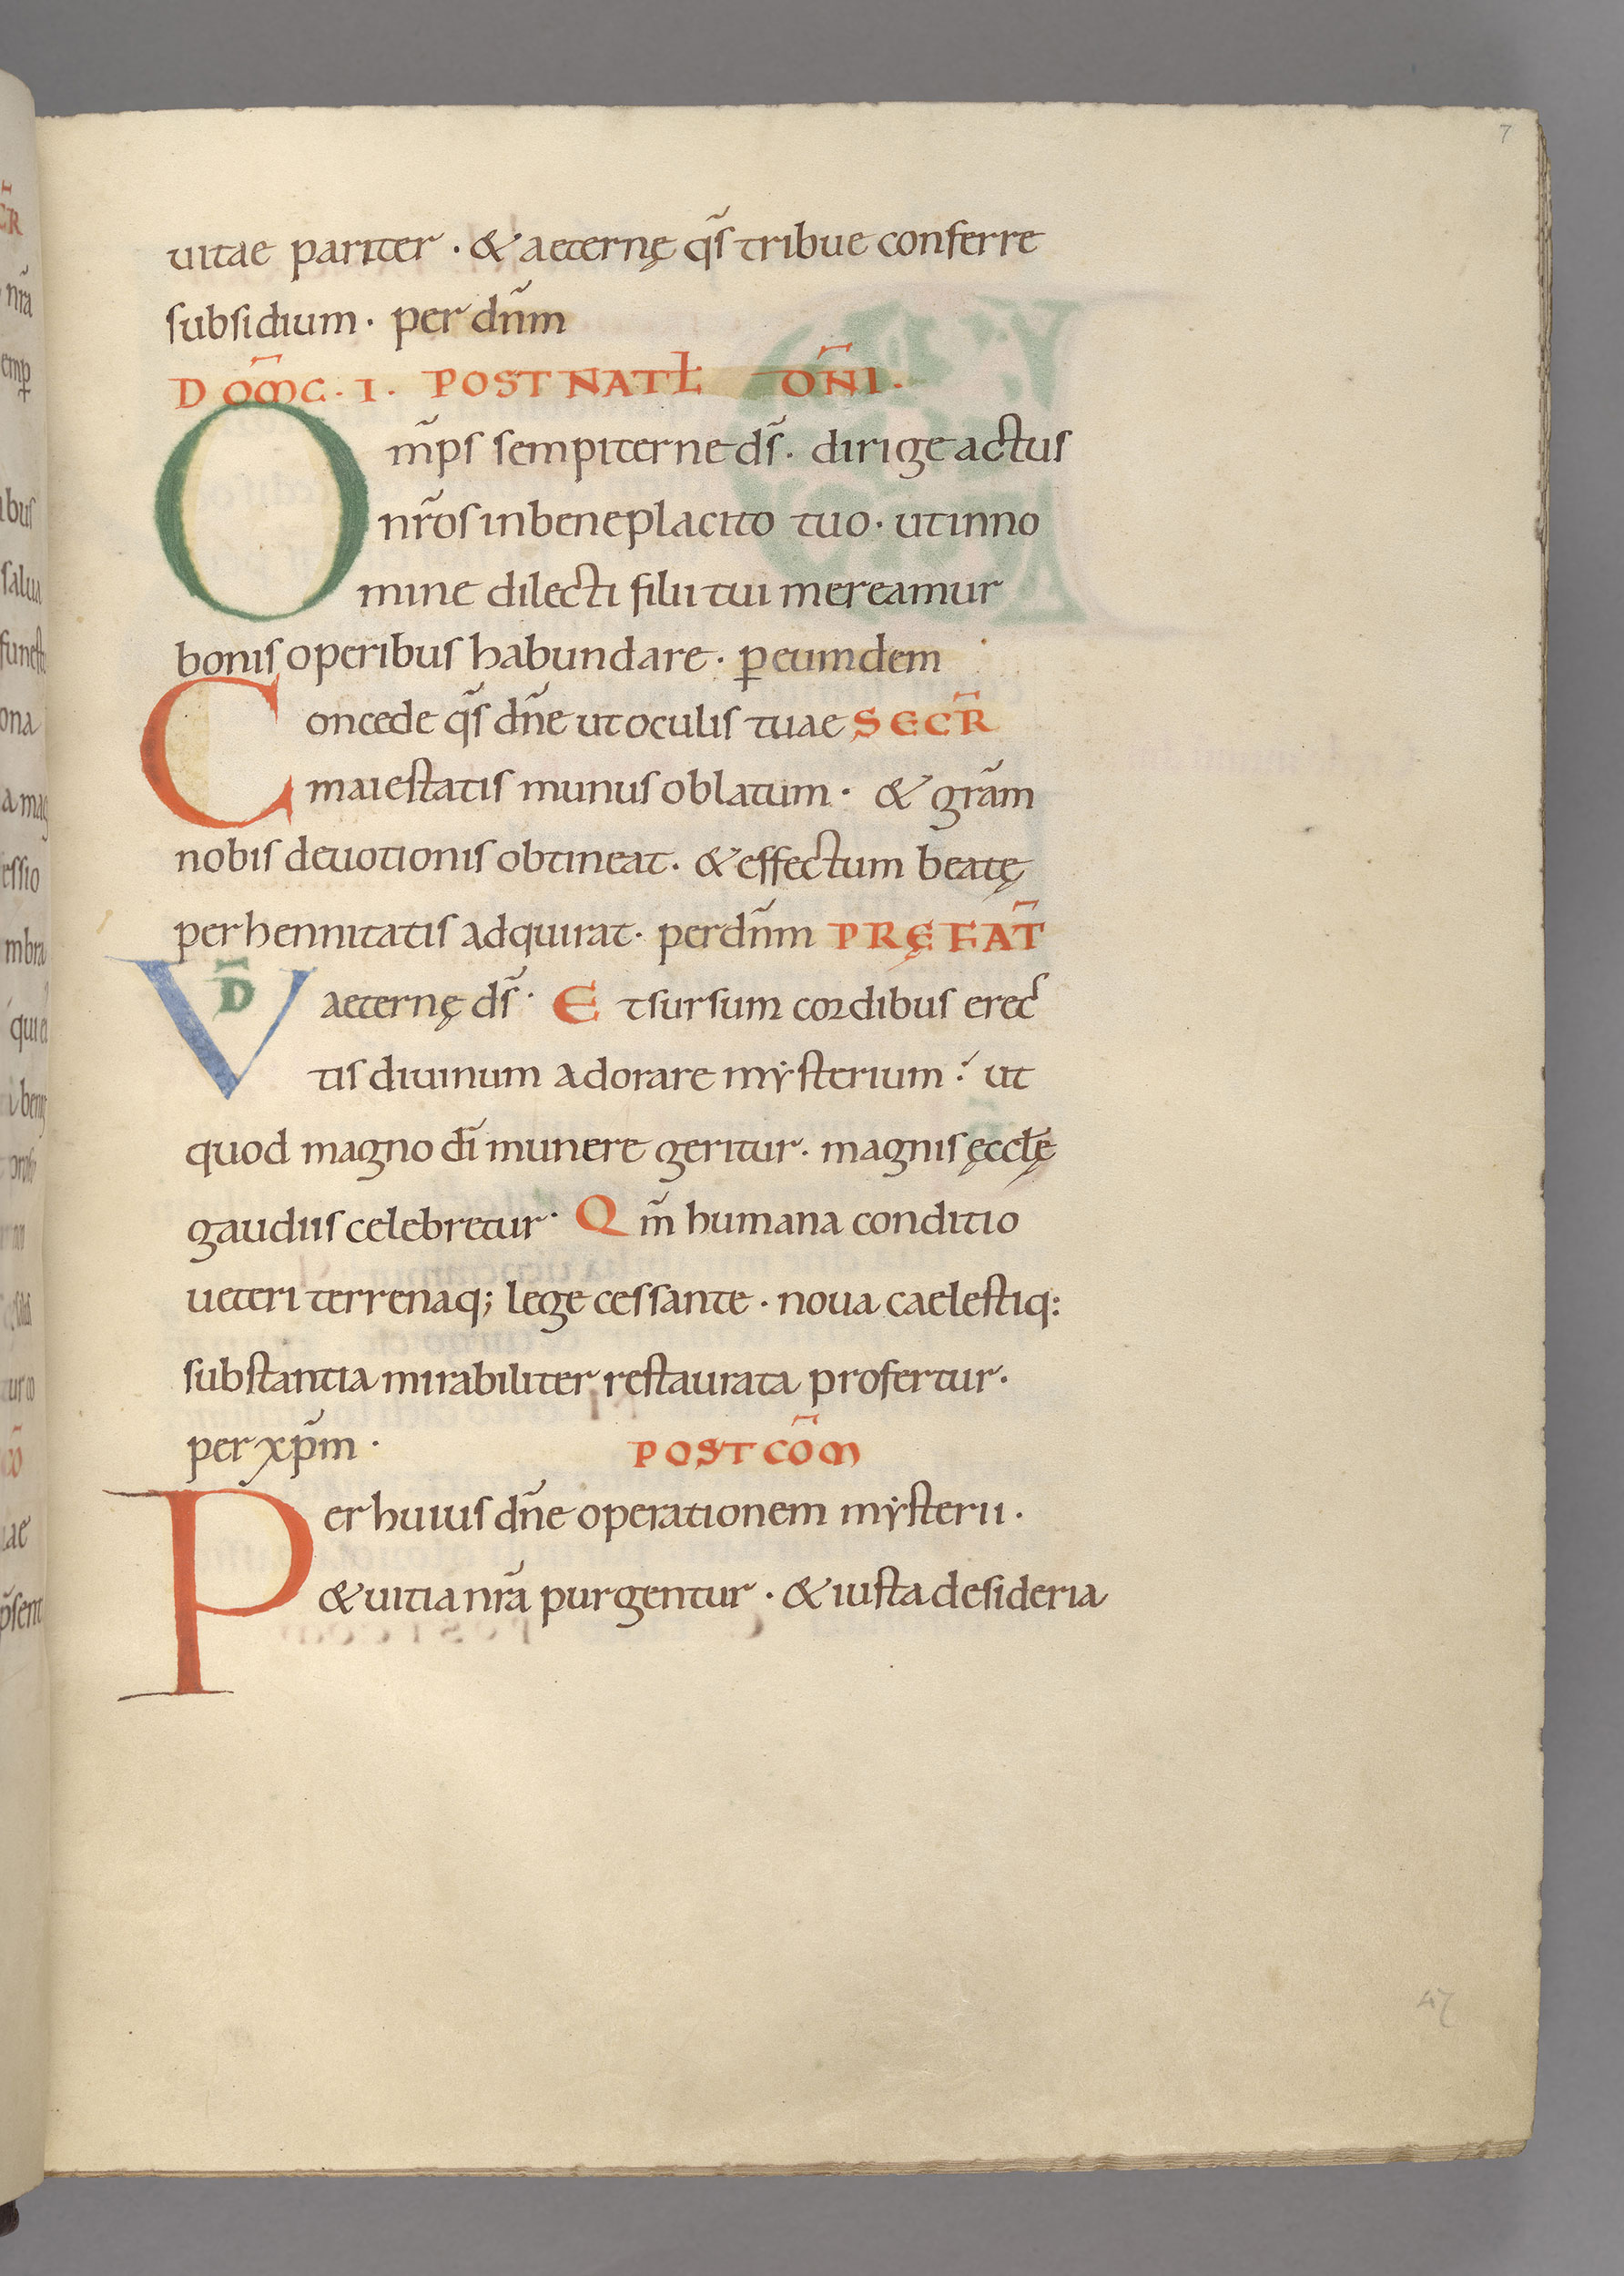 7
uitae pariter · & aeternę q̄s tribue conferre
subsidium · per dn̄m
DOM̄C · I · POST NATƚ DN̄I ·
Om̄ps sempiterne ds̄ · dirige actus
nr̄os inbeneplacito tuo · utinno
mine dilecti filii tui mereamur
bonis operibus habundare · ꝑ eumdem
Concede q̄s dn̄e ut oculis tuae SECR̄
maiestatis munus oblatum · & grām
nobis deuotionis obtineat · & effectum beatę
perhennitatis adquirat · per dn̄m PRĘFAT̄
VD̄ aeternę ds̄ · Et sursum cordibus erec
tis diuinum adorare mẏsterium : ut
quod magno dī munere geritur · magnis ęccƚę
gaudiis celebretur · Qm̄ humana conditio
ueteri terrenaq; lege cessante · noua caelestiq:
substantia mirabiliter restaurata profertur ·
per xp̄m · POST COM̄
Per huius dn̄e operationem mẏsterii ·
& uitia nr̄a purgentur · & iusta desideria
47